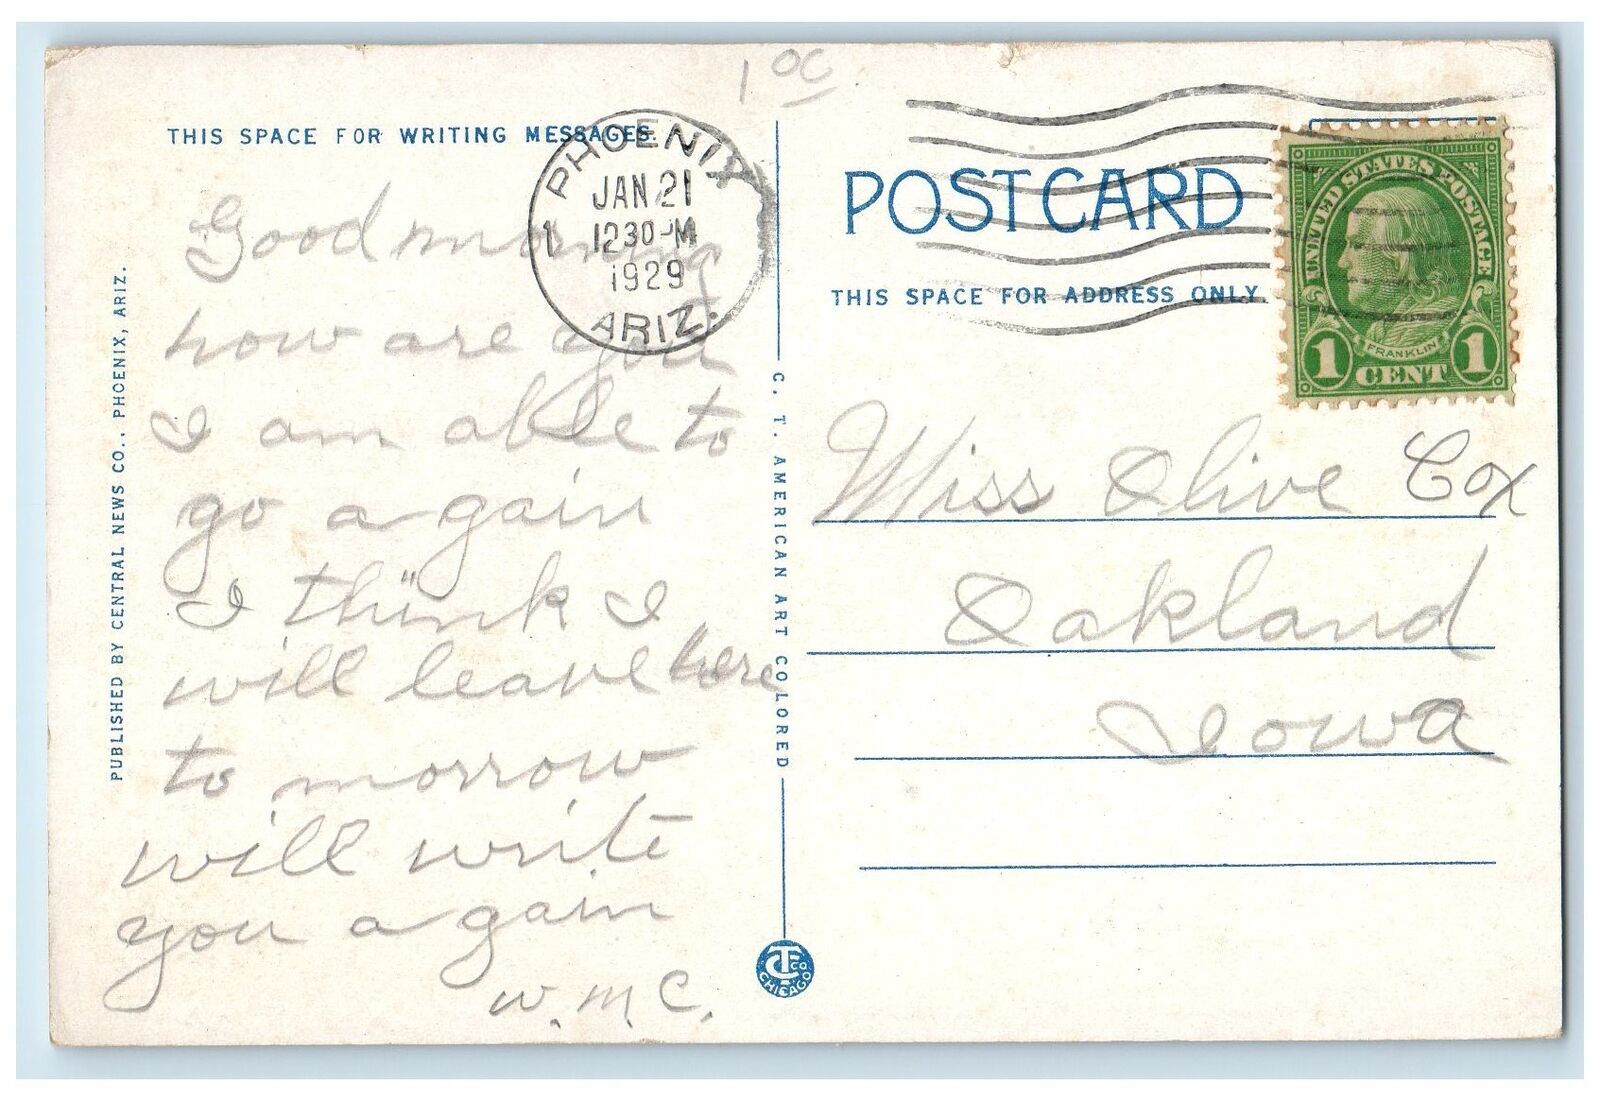 1 00
THIS SPACE FOR WRITING MESSAGES.
Good morning
how are you
I am able to
go a gain
I think I
will leave here
to morrow
will write
you a gain
W.M.C.
PUBLISHED BY CENTRAL NEWS CO., PHOENIX, ARIZ.
PHOENIX
1
JAN 21
12 30 PM
1929
ARIZ.
C. T. AMERICAN ART COLORED
CT CO.
CHICAGO
POST CARD
THIS SPACE FOR ADDRESS ONLY
UNITED STATES POSTAGE
FRANKLIN
1 CENT 1
Miss Olive Cox
Oakland
Iowa